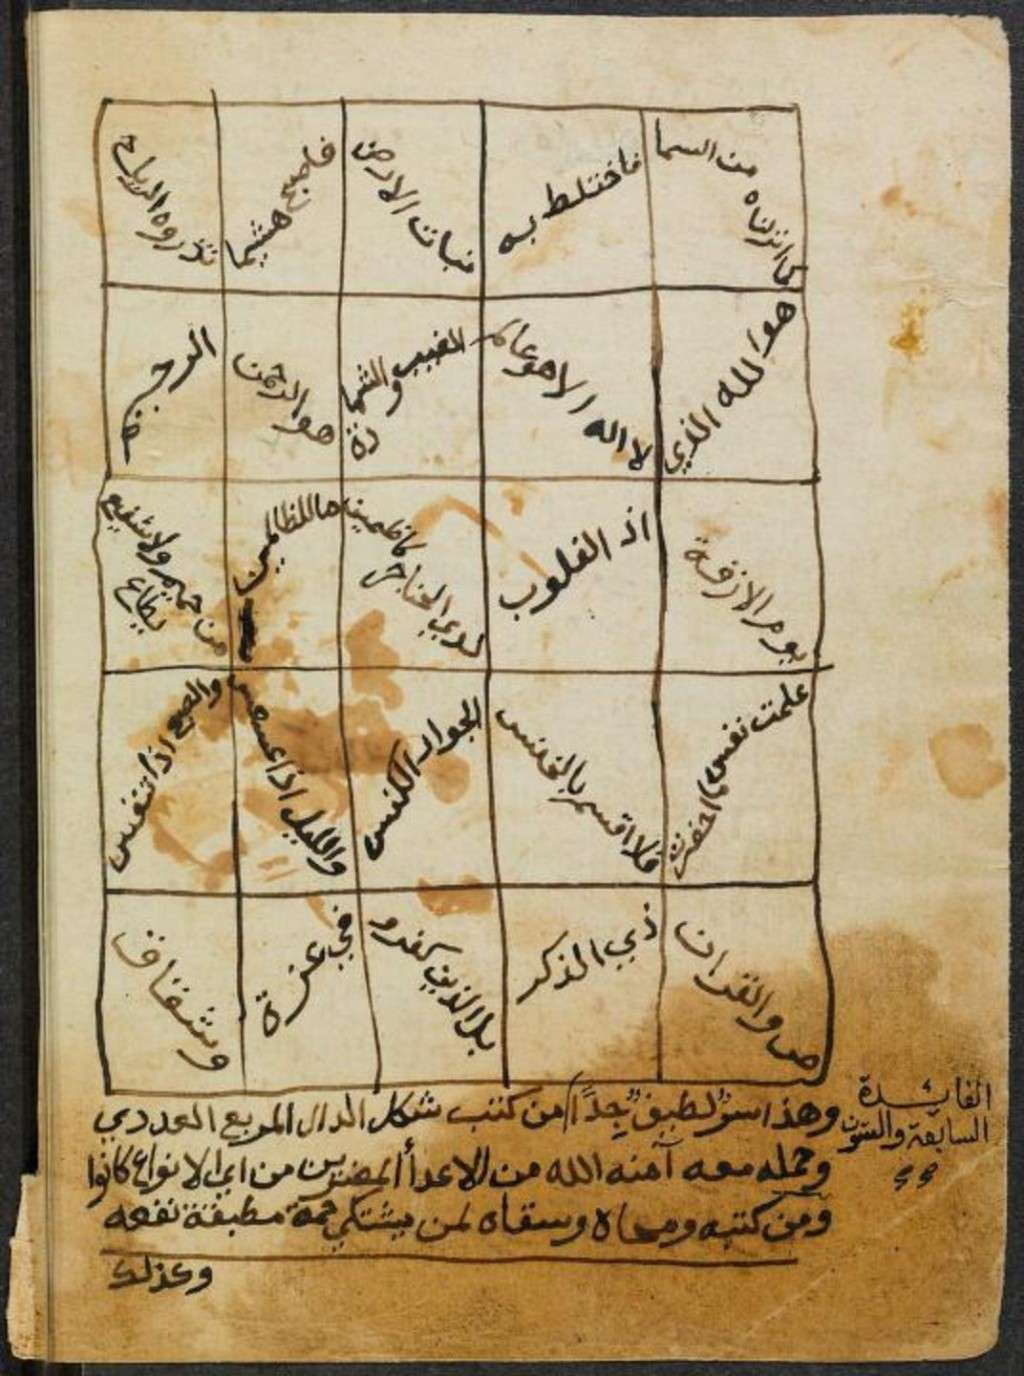 كما انزلناه من السما
فاختلط به
نبات الارض
فاصبح هشيما
تذروه الرياح
هو الله الذي
لا اله الا هو عالم
الغيب والشها
دة
هو الرحمن
الرحيم
يوم الازفة
اذ القلوب
لدي الحناجر
كاظمين
ما للظالمين
من حميم ولا شفيع
يطاع
علمت نفس ما احضرت
فلا اقسم بالخنس
الجوار الكنس
والليل اذا عسعس
والصبح اذا تنفس
ص والقران
ذي الذكر
بل الذين كفرو
في عزة
وشقاق
وهذا سر لطيف جدا من كتب شكل الدال المربع العددي
وحمله معه آمنه الله من الاعدأ المضرين من اي الانواع كانوا
ومن كتبه ومحاه وسقاه لمن يشتكي حمة مطبقة نفعه
وكذلك
الفائدة
السابعة والستون